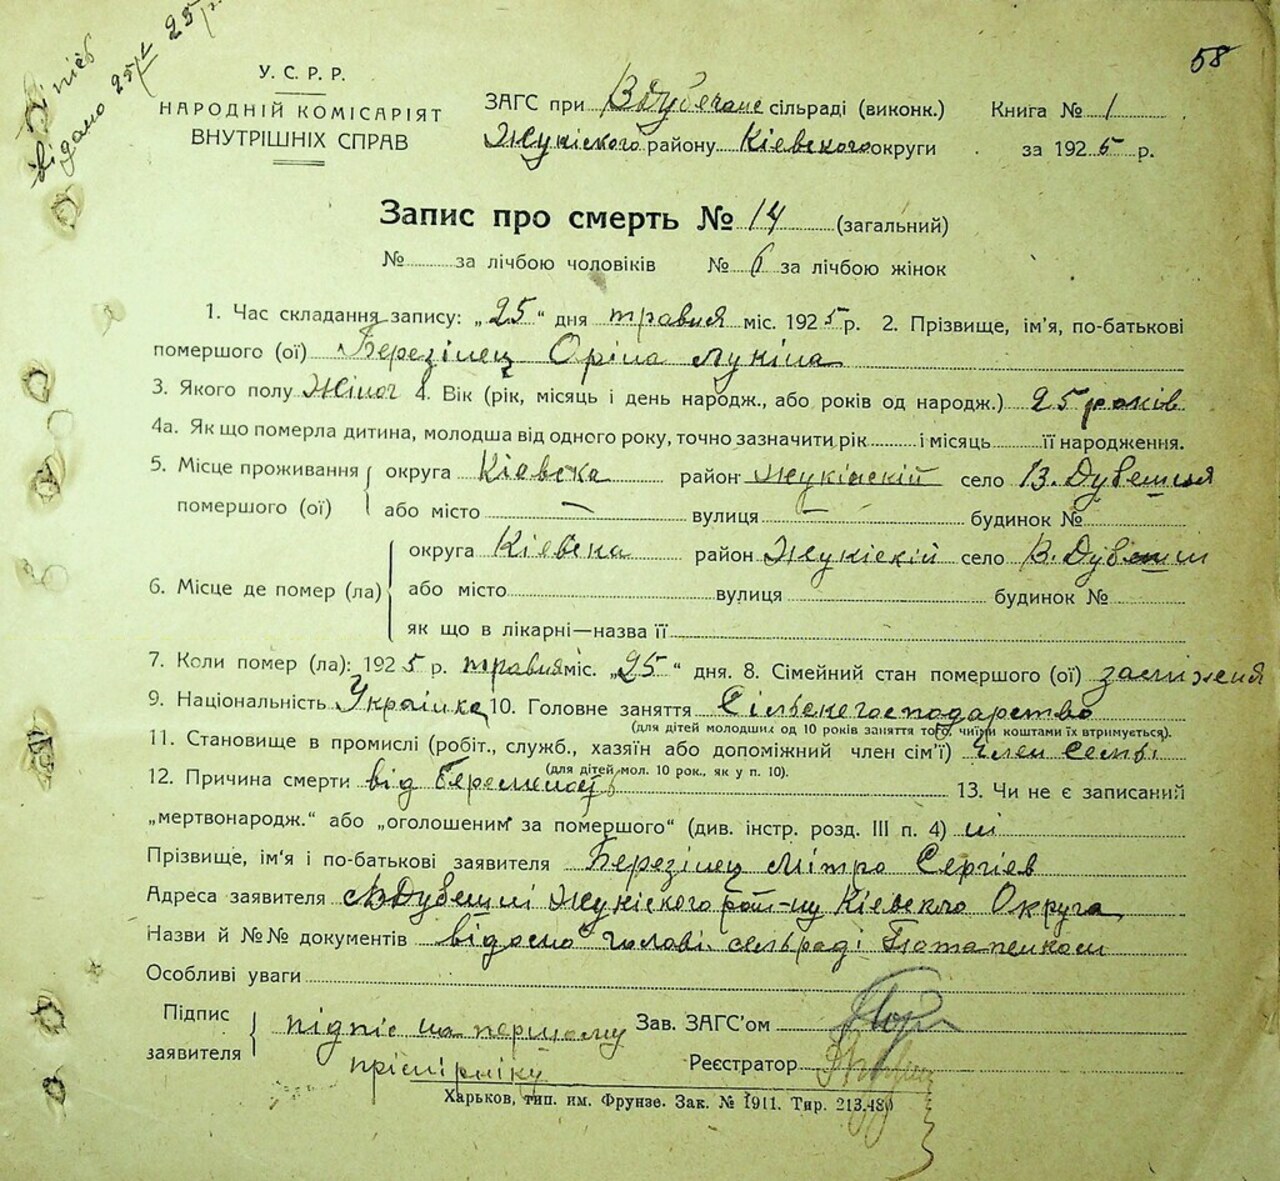 58
відано 25/V 25 р.
У. С. Р. Р.
НАРОДНІЙ КОМІСАРІЯТ
ВНУТРІШНІХ СПРАВ
ЗАГС при В Дубечанс сільраді (виконк.)
Жукіского району Кіевского округи
Книга № 1
за 1925 р.
Запис про смерть № 14 (загальний)
№ за лічбою чоловіків № 6 за лічбою жінок
1. Час складання запису: „25“ дня травня міс. 1925 р. 2. Прізвище, ім’я, по-батькові
помершого (ої) Березінец Оріна Лукіна
3. Якого полу Жіноч 4. Вік (рік, місяць і день народж., або років од народж.) 25 років
4а. Як що померла дитина, молодша від одного року, точно зазначити рік і місяць її народження.
5. Місце проживання округа Кіевска район Жукінскій село В. Дубешня
помершого (ої) або місто — вулиця — будинок №
округа Кіевска район Жукіскій село В. Дубешні
6. Місце де помер (ла) або місто вулиця будинок №
як що в лікарні—назва її
7. Коли помер (ла): 1925 р. травня міс. „25“ дня. 8. Сімейний стан помершого (ої) заміжня
9. Національність Українка 10. Головне заняття Сільскегосподарство
(для дітей молодших од 10 років заняття того, чиїми коштами їх втримується).
11. Становище в промислі (робіт., служб., хазяїн або допоміжний член сім’ї) Член семьі
(для дітей мол. 10 рок., як у п. 10).
12. Причина смерти від беременості 13. Чи не є записаний
„мертвонародж.“ або „оголошеним за помершого“ (див. інстр. розд. III п. 4) ні
Прізвище, ім’я і по-батькові заявителя Березінец Мітро Сергіев
Адреса заявителя с. В Дубешні Жукіского рай-ну Кіевско Округа
Назви й №№ документів відомо голові сельраді Потапенком
Особливі уваги
Підпис
заявителя
підпіс на першому
прімірніку
Зав. ЗАГС’ом
Реєстратор
Харьков, тип. им. Фрунзе. Зак. № 1911. Тир. 213.480